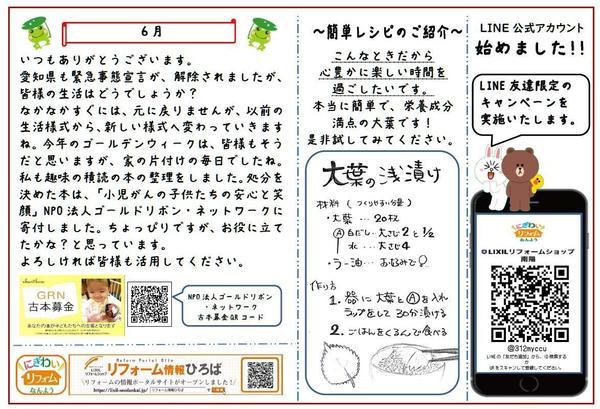 6月
いつもありがとうございます。
愛知県も緊急事態宣言が、解除されましたが、
皆様の生活はどうでしょうか?
なかなかすぐには、元に戻りませんが、以前の
生活様式から、新しい様式へ変わっていきます
ね。今年のゴールデンウィークは、皆様もそう
だと思いますが、家の片付けの毎日でしたね。
私も趣味の積読の本の整理をしました。処分を
決めた本は、「小児がんの子供たちの安心と笑
顔」NPO法人ゴールドリボン・ネットワークに
寄付しました。ちょっぴりですが、お役に立て
たかな?と思っています。
よろしければ皆様も活用してください。
GRN
古本募金
あなたの本が子どもたちへの支援となります
NPO法人ゴールドリボン
・ネットワーク
古本募金QRコード
にぎわい
リフォーム
なんよう
Reform Portal Site
LIXIL
リフォームショップ
リフォーム情報ひろば
リフォームの情報ポータルサイトがオープンしました!
リフォーム情報ひろば
～簡単レシピのご紹介～
こんなときだから
心豊かに楽しい時間を
過ごしたいです。
本当に簡単で、栄養成分
満点の大葉です!
是非試してみてください。
大葉の浅漬け
材料(つくりやすい分量)
・大葉…20枚
Ⓐ白だし…大さじ2と1/2
水…大さじ4
・ラー油…お好みで
作り方
1. 器に大葉とⒶを入れ
ラップをして30分漬ける
2. ごはんをくるんで食べる
LINE 公式アカウント
始めました!!
LINE 友達限定の
キャンペーンを
実施いたします。
にぎわい
リフォーム
なんよう
LIXILリフォームショップ
南陽
@312myccu
LINEの「友だち追加」から、ID検索する
か
QRをスキャンして登録してください。